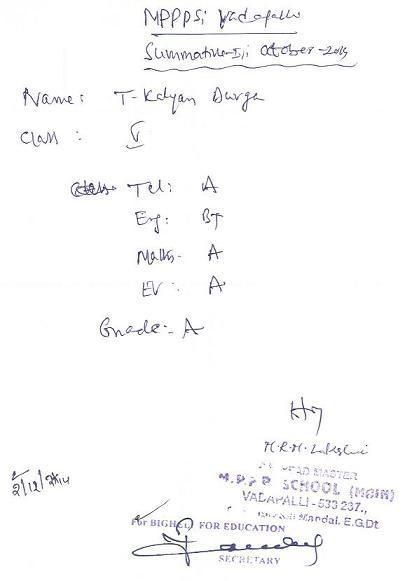 MPPPSi Vadapalli
Summative-I, October-2014
Name: T-Kalyan Durga
Class: V
Tel: A
Eng: B+
Maths- A
EV: A
Grade:- A
HM
HEAD MASTER
M.P.P. SCHOOL (MAIN)
VADAPALLI - 533 237.,
Mandal. E.G.Dt
2/12/2014
For BIGHELP FOR EDUCATION
SECRETARY